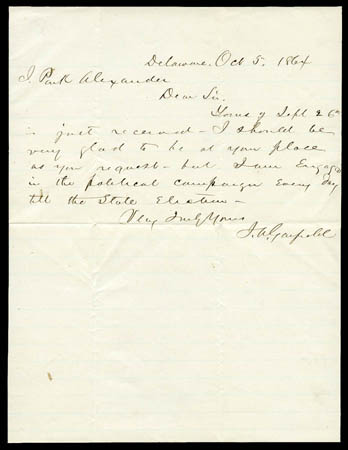 Delaware, Oct 5. 1864
J. Park Alexander
Dear Sir.
Yours of Sept 26th
is just received - I should be
very glad to be at your place
as you request - but I am Engaged
in the political campaign Every day
till the State Election -
Very Truly Yours
J. A. Garfield